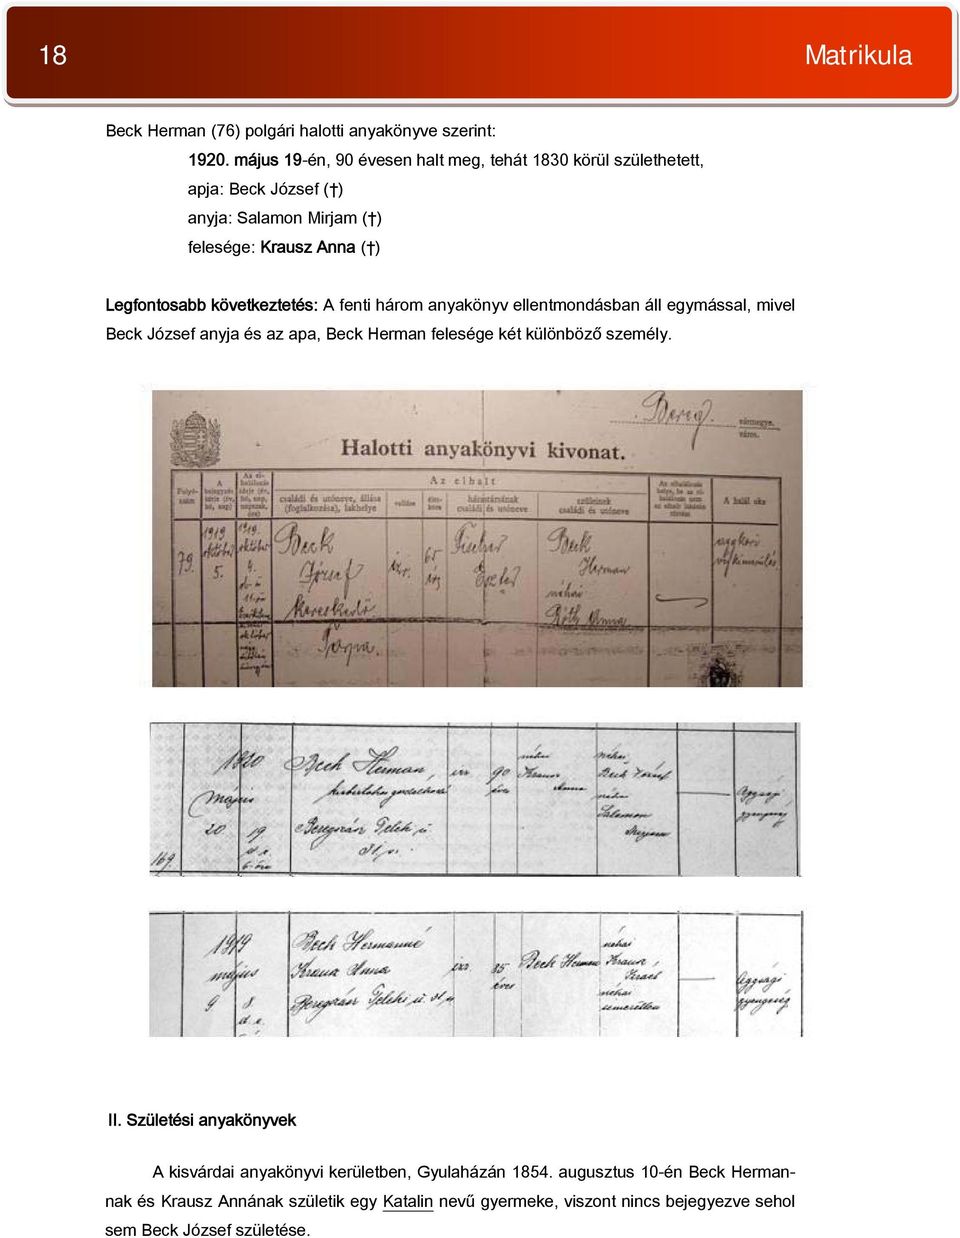 18 Matrikula
Beck Herman (76) polgári halotti anyakönyve szerint:
1920. május 19-én, 90 évesen halt meg, tehát 1830 körül születhetett,
apja: Beck József (†)
anyja: Salamon Mirjam (†)
felesége: Krausz Anna (†)
Legfontosabb következtetés: A fenti három anyakönyv ellentmondásban áll egymással, mivel
Beck József anyja és az apa, Beck Herman felesége két különböző személy.
Bereg vármegye.
város.
Halotti anyakönyvi kivonat.
Az elhalt
Folyó-szám
A bejegyzés ideje (év, hó, nap)
Az el-halálozás ideje (év, hó, nap, napszak, óra)
családi és utóneve, állása (foglalkozása), lakhelye
vallása
élet-kora
házastársának családi és utóneve
szüleinek családi és utóneve
Az elhalálozás helye, ha az el-halálozás nem az elhalt lakásán történt
A halál oka
79. 1919 október 5. 1919. október 4.
Beck József kereskedő Tarpa.
izr. 65 év
Fischer Eszter
Beck Herman néhai Róth Anna
aggkori végkimerülés.
169. 1920 május 20 19. d. e. 6 óra
Beck Herman,
Beregszász Teleki u.
izr. 90 éves
néhai Krausz Anna
néhai Beck József
néhai Salamon
Aggsági gyengeség
1919 május 9 8 d. e.
Beck Hermanné
Krausz Anna
Beregszász Teleki u. 31 sz
izr. 85 éves
Beck Herman
néhai Krausz Izrael
néhai ismeretlen
Aggsági gyengeség
II. Születési anyakönyvek
A kisvárdai anyakönyvi kerületben, Gyulaházán 1854. augusztus 10-én Beck Herman-
nak és Krausz Annának születik egy Katalin nevű gyermeke, viszont nincs bejegyezve sehol
sem Beck József születése.